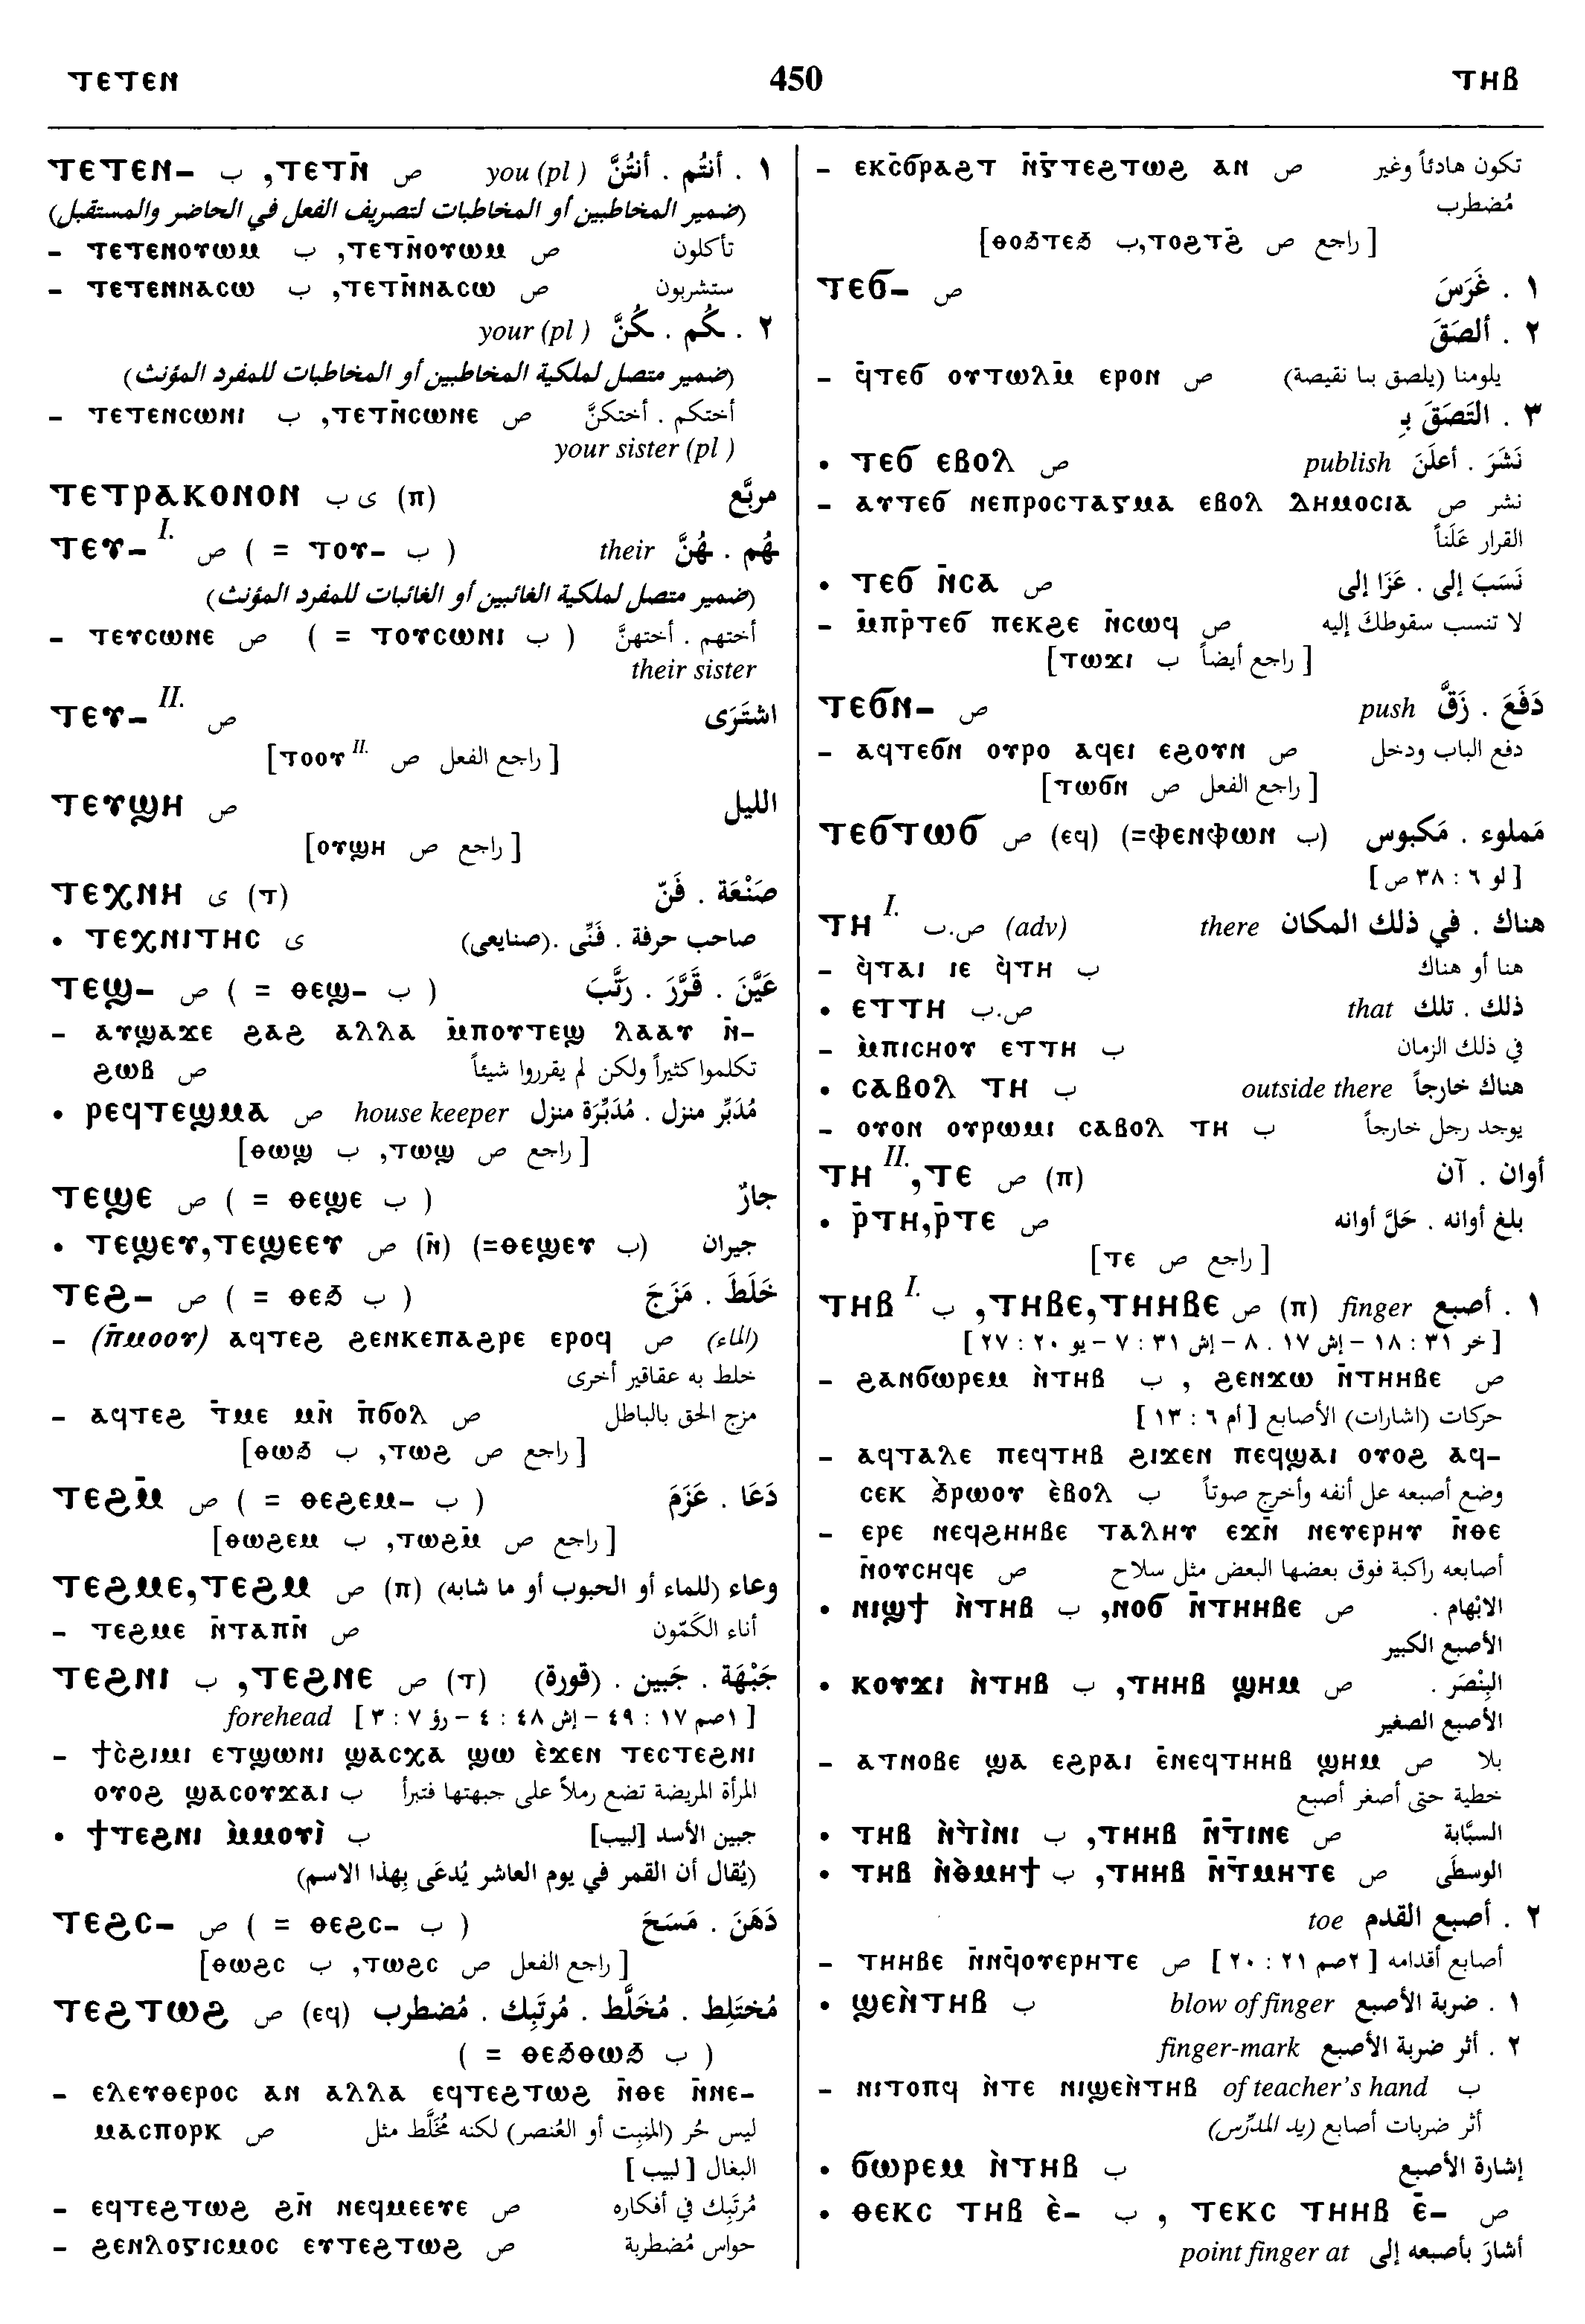 ⲧⲉⲧⲉⲛ 450 ⲧⲏⲃ
ⲧⲉⲧⲉⲛ- ب ,ⲧⲉⲧⲛ̄ ص you (pl) ١ . أنتُم . أنتُنَّ
(ضمير المخاطبين أو المخاطبات لتصريف الفعل في الحاضر والمستقبل)
- ⲧⲉⲧⲉⲛⲟⲩⲱⲙ ب ,ⲧⲉⲧⲛ̄ⲟⲩⲱⲙ ص تأكلون
- ⲧⲉⲧⲉⲛⲛⲁⲥⲱ ب ,ⲧⲉⲧⲛ̄ⲛⲁⲥⲱ ص ستشربون
your (pl) ٢ . كُم . كُنَّ
(ضمير متصل لملكية المخاطبين أو المخاطبات للمفرد المؤنث)
- ⲧⲉⲧⲉⲛⲥⲱⲛⲓ ب ,ⲧⲉⲧⲛ̄ⲥⲱⲛⲉ ص أختكم . أختكنَّ
your sister (pl)
ⲧⲉⲧⲣⲁⲕⲟⲛⲟⲛ ى ب (ⲡ) مربَّع
ⲧⲉⲩ- I. ص ( = ⲧⲟⲩ- ب ) their هُم . هُنَّ
(ضمير متصل لملكية الغائبين أو الغائبات للمفرد المؤنث)
- ⲧⲉⲩⲥⲱⲛⲉ ص ( = ⲧⲟⲩⲥⲱⲛⲓ ب ) أختهم . أختهنَّ
their sister
ⲧⲉⲩ- II. ص اشتَرَى
[ راجع الفعل ص ⲧⲟⲟⲩ II. ]
ⲧⲉⲩϣⲏ ص الليل
[ راجع ص ⲟⲩϣⲏ ]
ⲧⲉⲭⲛⲏ ى (ⲧ) صَنْعَة . فَنّ
• ⲧⲉⲭⲛⲓⲧⲏⲥ ى صاحب حرفة . فَنِّى .(صنايعى)
ⲧⲉϣ- ص ( = ⲑⲉϣ- ب ) عَيَّنَ . قَرَّرَ . رَتَّبَ
- ⲁⲩϣⲁϫⲉ ϩⲁϩ ⲁⲗⲗⲁ ⲙ̄ⲡⲟⲩⲧⲉϣ ⲗⲁⲁⲩ ⲛ̄-
ϩⲱⲃ ص تكلموا كثيراً ولكن لم يقرروا شيئاً
• ⲣⲉϥⲧⲉϣⲙⲁ ص house keeper مُدَبِّر منزل . مُدَبِّرَة منزل
[ راجع ص ⲧⲱϣ, ب ⲑⲱϣ ]
ⲧⲉϣⲉ ص ( = ⲑⲉϣⲉ ب ) جارٌ
• ⲧⲉϣⲉⲩ,ⲧⲉϣⲉⲉⲩ ص (ⲛ̄) (=ⲑⲉϣⲉⲩ ب) جيران
ⲧⲉϩ- ص ( = ⲑⲉϧ ب ) خَلَطَ . مَزَجَ
- (ⲡ̄ⲙⲟⲟⲩ) ⲁϥⲧⲉϩ ϩⲉⲛⲕⲉⲡⲁϩⲣⲉ ⲉⲣⲟϥ ص (الماء)
خلط به عقاقير أخرى
- ⲁϥⲧⲉϩ ⲧ̄ⲙⲉ ⲙⲛ̄ ⲡ̄ϭⲟⲗ ص مزج الحق بالباطل
[ راجع ص ⲧⲱϩ, ب ⲑⲱϧ ]
ⲧⲉϩⲙ̄ ص ( = ⲑⲉϩⲉⲙ- ب ) دَعَا . عَزَمَ
[ راجع ص ⲧⲱϩⲙ̄, ب ⲑⲱϩⲉⲙ ]
ⲧⲉϩⲙⲉ,ⲧⲉϩⲙ ص (ⲡ) وعاء (للماء أو الحبوب أو ما شابه)
- ⲧⲉϩⲙⲉ ⲛ̄ⲧⲁⲡⲛ̄ ص أناء الكَمّون
ⲧⲉϩⲛⲓ ب ,ⲧⲉϩⲛⲉ ص (ⲧ) جَبْهَة . جَبين . (قورة)
forehead [ ١صم ١٧ : ٤٩ – إش ٤٨ : ٤ – رؤ ٧ : ٣ ]
- ϯⲥ̀ϩⲓⲙⲓ ⲉⲧϣⲱⲛⲓ ϣⲁⲥⲭⲁ ϣⲱ ⲉ̀ϫⲉⲛ ⲧⲉⲥⲧⲉϩⲛⲓ
ⲟⲩⲟϩ ϣⲁⲥⲟⲩϫⲁⲓ ب المرأة المريضة تضع رملاً على جبهتها فتبرأ
• ϯⲧⲉϩⲛⲓ ⲙ̀ⲙⲟⲩⲓ̀ ب جبين الأسد [لبيب]
(يُقال أن القمر في يوم العاشر يُدعَى بِهذا الاسم)
ⲧⲉϩⲥ- ص ( = ⲑⲉϩⲥ- ب ) دَهَنَ . مَسَحَ
[ راجع الفعل ص ⲧⲱϩⲥ, ب ⲑⲱϩⲥ ]
ⲧⲉϩⲧⲱϩ ص (ⲉϥ) مُختَلِط . مُخَلَّط . مُرتَبِك . مُضطرب
( = ⲑⲉϧⲑⲱϧ ب )
- ⲉⲗⲉⲩⲑⲉⲣⲟⲥ ⲁⲛ ⲁⲗⲗⲁ ⲉϥⲧⲉϩⲧⲱϩ ⲛ̄ⲑⲉ ⲛ̄ⲛⲉ-
ⲙⲁⲥⲡⲟⲣⲕ ص ليس حُر (المنبِت أو العُنصر) لكنه مُخَلَّط مثل
البغال [ لبيب ]
- ⲉϥⲧⲉϩⲧⲱϩ ϩⲛ̄ ⲛⲉϥⲙⲉⲉⲩⲉ ص مُرتَبِك في أفكاره
- ϩⲉⲛⲗⲟⲅⲓⲥⲙⲟⲥ ⲉⲩⲧⲉϩⲧⲱϩ ص حواس مُضطربة
- ⲉⲕⲥ̄ϭⲣⲁϩⲧ ⲛ̄ⲅ̄ⲧⲉϩⲧⲱϩ ⲁⲛ ص تكون هادئاً وغير
مُضطرب
[ راجع ص ⲧⲟϩⲧϩ̄, ب ⲑⲟϧⲧⲉϧ ]
ⲧⲉϭ- ص ١ . غَرَسَ
٢ . ألصَقَ
- ϥ̄ⲧⲉϭ ⲟⲩⲧⲱⲗⲙ̄ ⲉⲣⲟⲛ ص يلومنا (يلصق بنا نقيصة)
٣ . التَصَقَ بِـ
• ⲧⲉϭ ⲉⲃⲟⲗ ص publish نَشَرَ . أعلَنَ
- ⲁⲩⲧⲉϭ ⲛⲉⲡⲣⲟⲥⲧⲁⲅⲙⲁ ⲉⲃⲟⲗ ⲇⲏⲙⲟⲥⲓⲁ ص نشر
القرار عَلَناً
• ⲧⲉϭ ⲛ̄ⲥⲁ ص نَسَبَ إلى . عَزَا إلى
- ⲙ̄ⲡⲣ̄ⲧⲉϭ ⲡⲉⲕϩⲉ ⲛ̄ⲥⲱϥ ص لا تنسب سقوطك إليه
[ راجع أيضاً ب ⲧⲱϫⲓ ]
ⲧⲉϭⲛ- ص push دَفَعَ . زَقَّ
- ⲁϥⲧⲉϭⲛ ⲟⲩⲣⲟ ⲁϥⲉⲓ ⲉϩⲟⲩⲛ ص دفع الباب ودخل
[ راجع الفعل ص ⲧⲱϭⲛ ]
ⲧⲉϭⲧⲱϭ ص (ⲉϥ) (=ⲫⲉⲛⲫⲱⲛ ب) مَملوء . مَكبوس
[ لو ٦ : ٣٨ ص ]
ⲧⲏ I. ص.ب (adv) there هناك . في ذلك المكان
- ϥ̀ⲧⲁⲓ ⲓⲉ ϥ̀ⲧⲏ ب هنا أو هناك
• ⲉⲧⲧⲏ ص.ب that ذلك . تلك
- ⲙ̀ⲡⲓⲥⲏⲟⲩ ⲉⲧⲧⲏ ب في ذلك الزمان
• ⲥⲁⲃⲟⲗ ⲧⲏ ب outside there هناك خارجاً
- ⲟⲩⲟⲛ ⲟⲩⲣⲱⲙⲓ ⲥⲁⲃⲟⲗ ⲧⲏ ب يوجد رجل خارجاً
ⲧⲏ II. ,ⲧⲉ ص (ⲡ) أوان . آن
• ⲣ̄ⲧⲏ,ⲣ̄ⲧⲉ ص بلغ أوانه . حَلَّ أوانه
[ راجع ص ⲧⲉ ]
ⲧⲏⲃ I. ب ,ⲧⲏⲃⲉ,ⲧⲏⲏⲃⲉ ص (ⲡ) finger ١ . أصبع
[ خر ٣١ : ١٨ – إش ١٧ . ٨ – إش ٣١ : ٧ – يو ٢٠ : ٢٧ ]
- ϩⲁⲛϭⲱⲣⲉⲙ ⲛ̀ⲧⲏⲃ ب , ϩⲉⲛϫⲱ ⲛ̄ⲧⲏⲏⲃⲉ ص
حركات (اشارات) الأصابع [ أم ٦ : ١٣ ]
- ⲁϥⲧⲁⲗⲉ ⲡⲉϥⲧⲏⲃ ϩⲓϫⲉⲛ ⲡⲉϥϣⲁⲓ ⲟⲩⲟϩ ⲁϥ-
ⲥⲉⲕ ϧ̀ⲣⲱⲟⲩ ⲉ̀ⲃⲟⲗ ب وضع أصبعه عل أنفه وأخرج صوتاً
- ⲉⲣⲉ ⲛⲉϥϩⲏⲏⲃⲉ ⲧⲁⲗⲏⲩ ⲉϫⲛ̄ ⲛⲉⲩⲉⲣⲏⲩ ⲛ̄ⲑⲉ
ⲛ̄ⲟⲩⲥⲏϥⲉ ص أصابعه راكبة فوق بعضها البعض مثل سلاح
• ⲛⲓϣϯ ⲛ̀ⲧⲏⲃ ب ,ⲛⲟϭ ⲛ̄ⲧⲏⲏⲃⲉ ص الابْهام .
الأصبع الكبير
• ⲕⲟⲩϫⲓ ⲛ̀ⲧⲏⲃ ب ,ⲧⲏⲏⲃ ϣⲏⲙ ص البِنْصَر .
الأصبع الصغير
- ⲁⲧⲛⲟⲃⲉ ϣⲁ ⲉϩⲣⲁⲓ ⲉ̄ⲛⲉϥⲧⲏⲏⲃ ϣⲏⲙ ص بلا
خطية حتى أصغر أصبع
• ⲧⲏⲃ ⲛ̀ⲧ̀ⲓⲛⲓ ب ,ⲧⲏⲏⲃ ⲛ̄ⲧ̄ⲓⲛⲉ ص السبَّابة
• ⲧⲏⲃ ⲛ̀ⲑ̀ⲙⲏϯ ب ,ⲧⲏⲏⲃ ⲛ̄ⲧ̄ⲙⲏⲧⲉ ص الوسطَى
toe ٢ . أصبع القدم
- ⲧⲏⲏⲃⲉ ⲛ̄ⲛϥ̄ⲟⲩⲉⲣⲏⲧⲉ ص أصابع أقدامه [ ٢صم ٢١ : ٢٠ ]
• ϣⲉⲛ̀ⲧⲏⲃ ب blow of finger ١ . ضربة الأصبع
finger-mark ٢ . أثر ضربة الأصبع
- ⲛⲓⲧⲟⲡϥ ⲛ̀ⲧⲉ ⲛⲓϣⲉⲛ̀ⲧⲏⲃ of teacher's hand ب
أثر ضربات أصابع (يد المدرِّس)
• ϭⲱⲣⲉⲙ ⲛ̀ⲧⲏⲃ ب إشارة الأصبع
• ⲑⲉⲕⲥ ⲧⲏⲃ ⲉ̀- ب , ⲧⲉⲕⲥ ⲧⲏⲏⲃ ⲉ̄- ص
point finger at أشارَ بأصبعه إلى